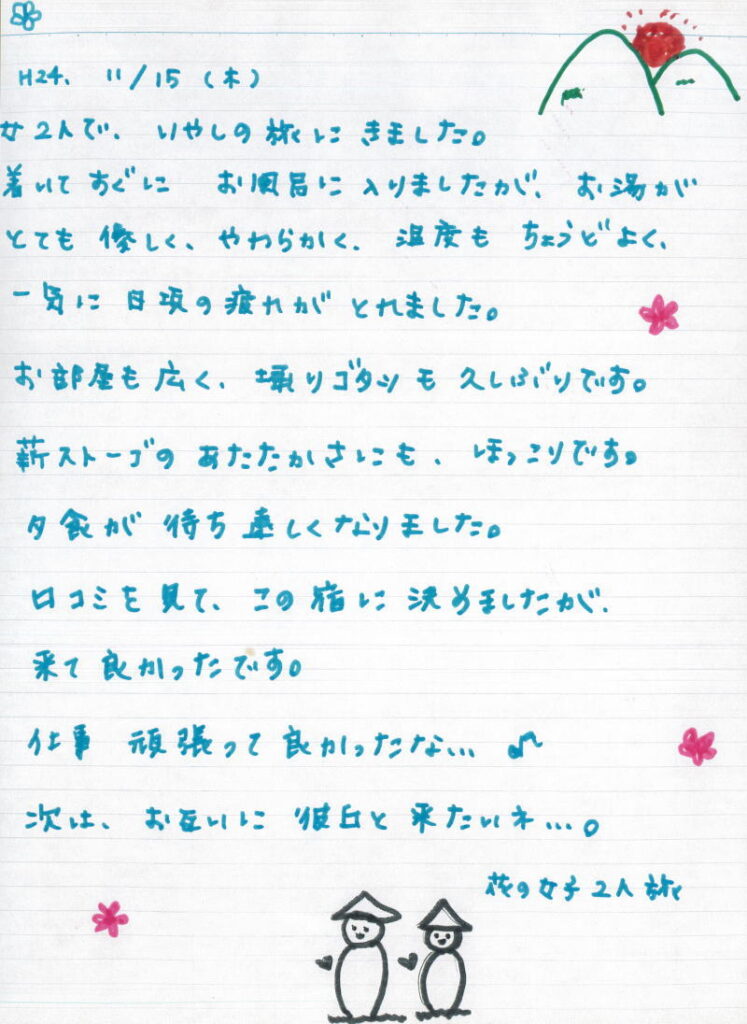 H24. 11/15 (木)
女2人で、いやしの旅にきました。
着いてすぐに お風呂に入りましたが、お湯が
とても優しく、やわらかく、温度もちょうどよく、
一気に日頃の疲れがとれました。
お部屋も広く、堀りゴタツも久しぶりです。
薪ストーブのあたたかさにも、ほっこりです。
夕食が待ち遠しくなりました。
口コミを見て、この宿に決めましたが、
来て良かったです。
仕事 頑張って良かったな… ♪
次は、お互いに彼氏と来たいネ…。
花の女子2人旅